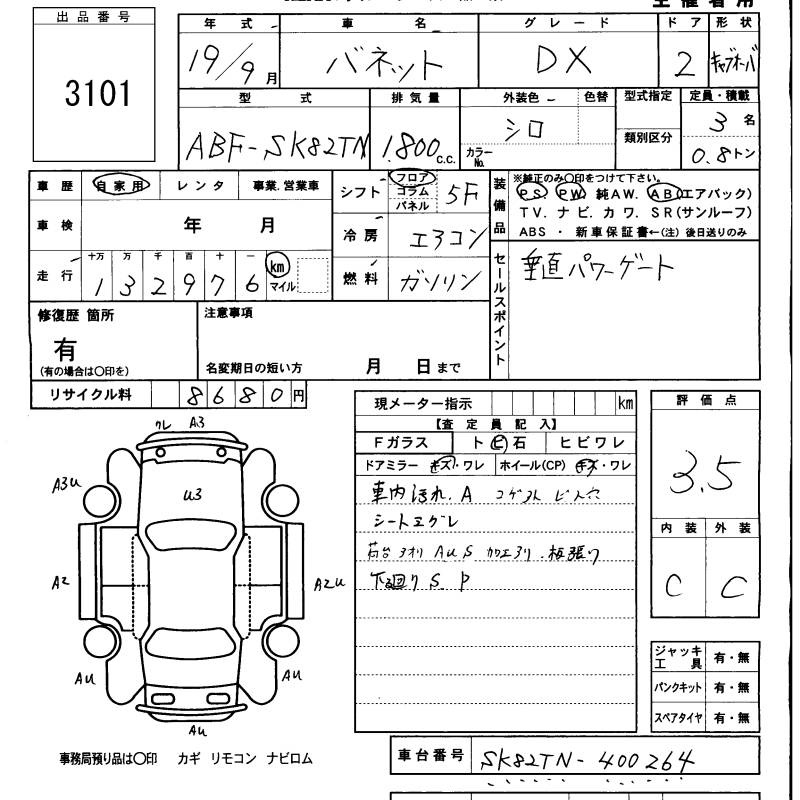 出品番号
3101
年式 車名 グレード ドア 形状
19/9月 バネット DX 2 キャブオーバ
型式 排気量 外装色 色替 型式指定 定員・積載
ABF-SK82TN 1800c.c. シロ カラーNo. 類別区分 3名 0.8トン
車歴 自家用 レンタ 事業.営業車 シフト フロア コラム パネル 5F
装備品 ※純正のみ○印をつけて下さい。
PS. PW. 純AW. AB(エアバック)
TV. ナビ. カワ. SR(サンルーフ)
ABS ・ 新車保証書←(注) 後日送りのみ
車検 年 月 冷房 エアコン
走行 十万 万 千 百 十 一
132976 km マイル 燃料 ガソリン
セールスポイント 垂直パワーゲート
修復歴 箇所 注意事項
有
(有の場合は○印を) 名変期日の短い方 月 日まで
リサイクル料 8680円
現メーター指示 km
【査定員記入】
Fガラス ト ビ 石 ヒビワレ
ドアミラー キズ・ワレ ホイール(CP) キズ・ワレ
車内汚れ.A コゲアト ビス穴
シートエグレ
荷台 アオリ AUS 板張り
下廻り S.P
評価点
3.5
内装 外装
C C
ワレ A3
U3
A3U
A2 A2U
AU AU
AU
ジャッキ工具 有・無
パンクキット 有・無
スペアタイヤ 有・無
事務局預り品は○印 カギ リモコン ナビロム
車台番号 SK82TN-400264